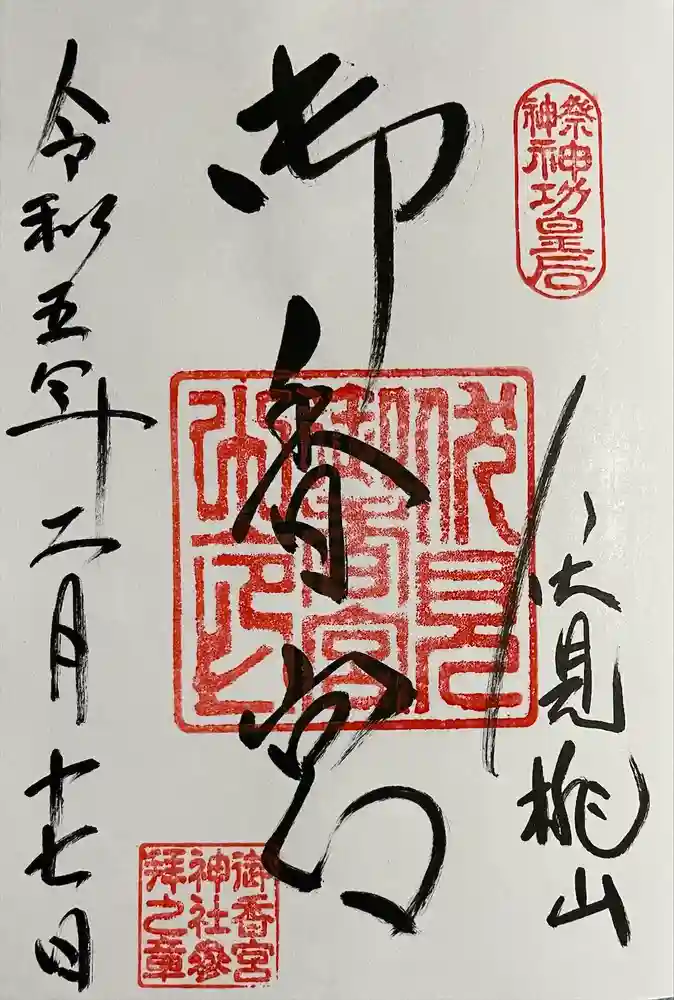 祭神
神功皇后
伏見桃山
御香宮
伏見
御香宮
御香宮
神社參
拜之章
令和五年二月十七日